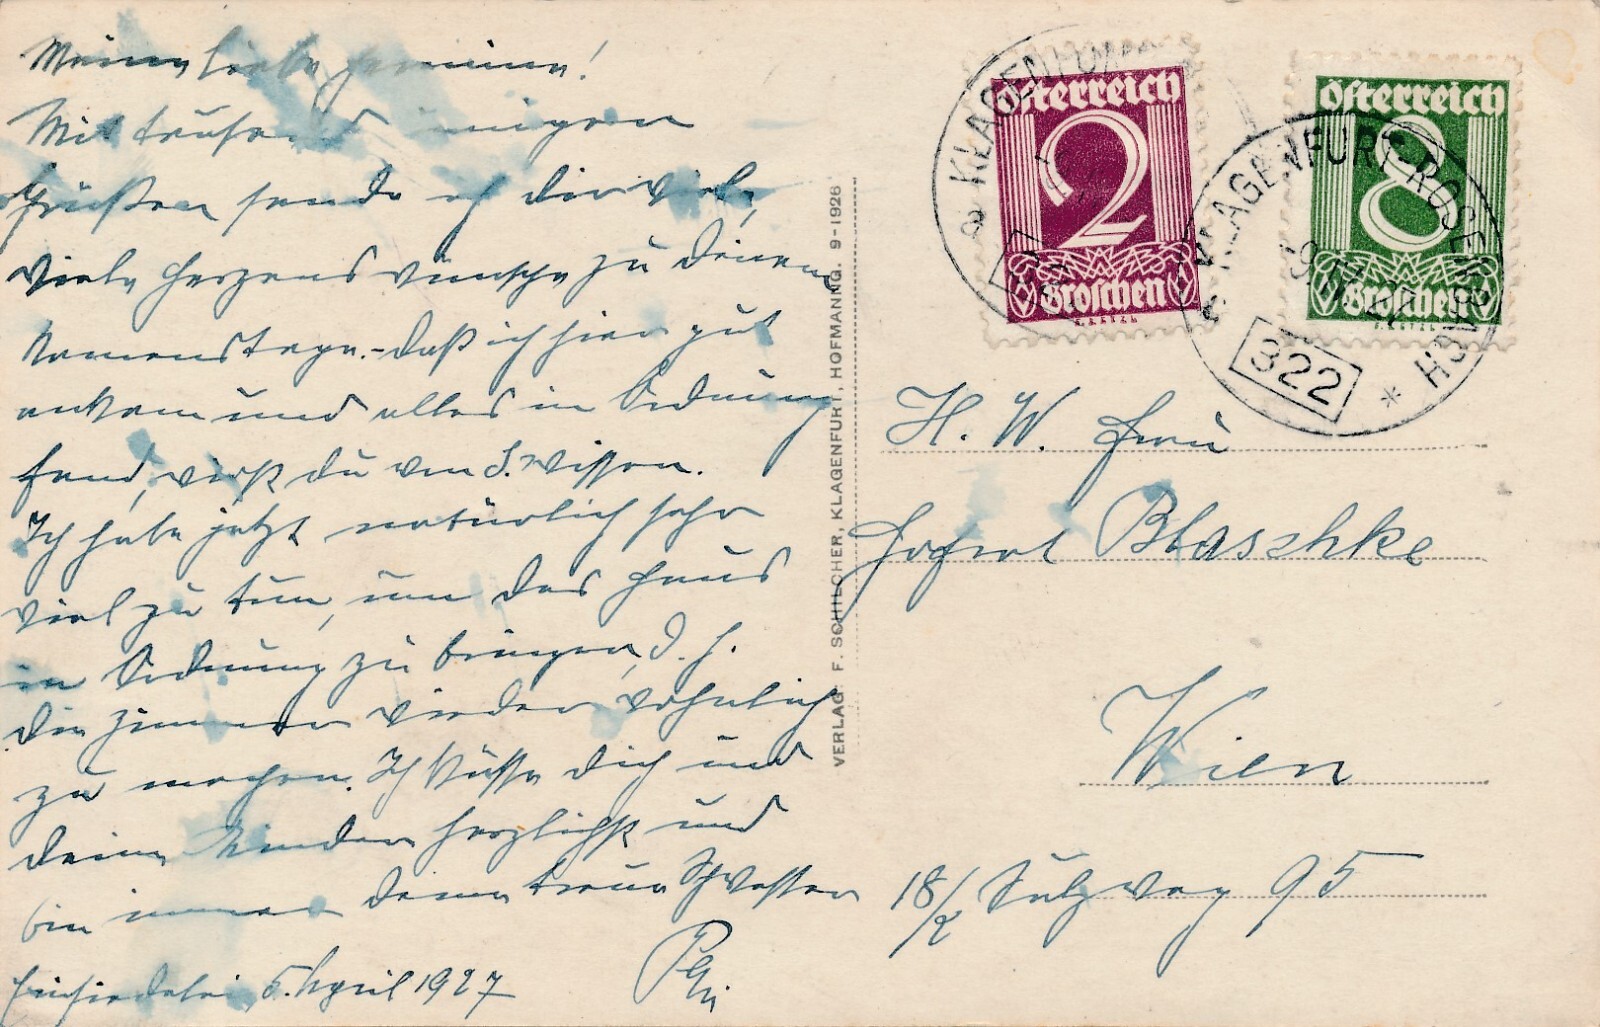 Meine liebe Hermine!
Mit tausend innigen
Grüßen sende ich dir viele,
viele Herzenswünsche zu deinem
Namenstage.- Daß ich hier gut
ankam und alles in Ordnung
fand, wirst du von S. wissen.
Ich habe jetzt natürlich sehr
viel zu tun, um das Haus
in Ordnung zu bringen, d. h.
die Zimmer wieder wohnlich
zu machen. Ich küsse dich und
deine Kinder herzlichst und
bin immer deine treue Schwester
Einsiedelei, 5. April 1927
VERLAG: F. SCHILCHER, KLAGENFURT, HOFMANNG. 9-1926
Österreich
2
Groschen
Österreich
8
Groschen
KLAGENFURT
KLAGENFURT-ROSENTALER
322
H. W. Frau
Hofrat Blaschke
Wien
18/2 Sulzweg 95